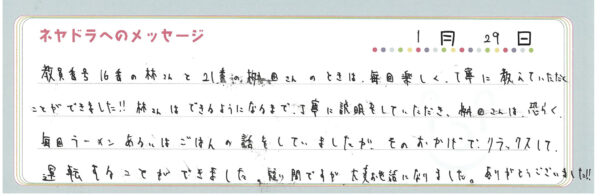 ネヤドラへのメッセージ
1月 29日
教員番号16番の林さんと21番の棚田さんのときは、毎回楽しく、丁寧に教えていただく
ことができました!!林さんはできるようになるまで、丁寧に説明をしていただき、棚田さんは、恐らく、
毎回ラーメンあるいはごはんの話をしていましたが、そのおかげでリラックスして、
運転することができました。短い間ですが大変お世話になりました。ありがとうございました!!